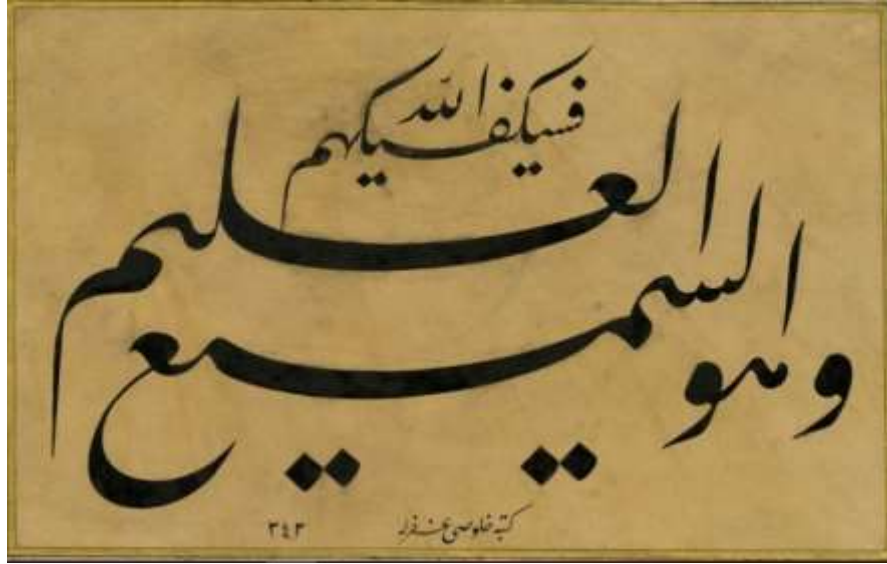 فسيكفيكهم الله
وهو السميع العليم
كتبه خلوصی غفرله
٣٤٣